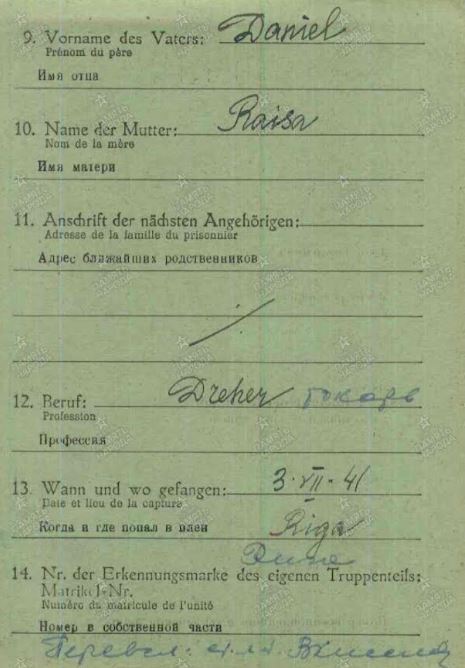 9. Vorname des Vaters: Daniel
Prénom du père
Имя отца
10. Name der Mutter: Raisa
Nom de la mère
Имя матери
11. Anschrift der nächsten Angehörigen:
Adresse de la famille du prisonnier
Адрес ближайших родственников
12. Beruf: Dreher токарь
Profession
Профессия
13. Wann und wo gefangen: 3.VII.41
Date et lieu de la capture
Когда и где попал в плен Riga
Рига
14. Nr. der Erkennungsmarke des eigenen Truppenteils:
Matrikel-Nr.
Numéro du matricule de l'unité
Номер в собственной части
Перевел: